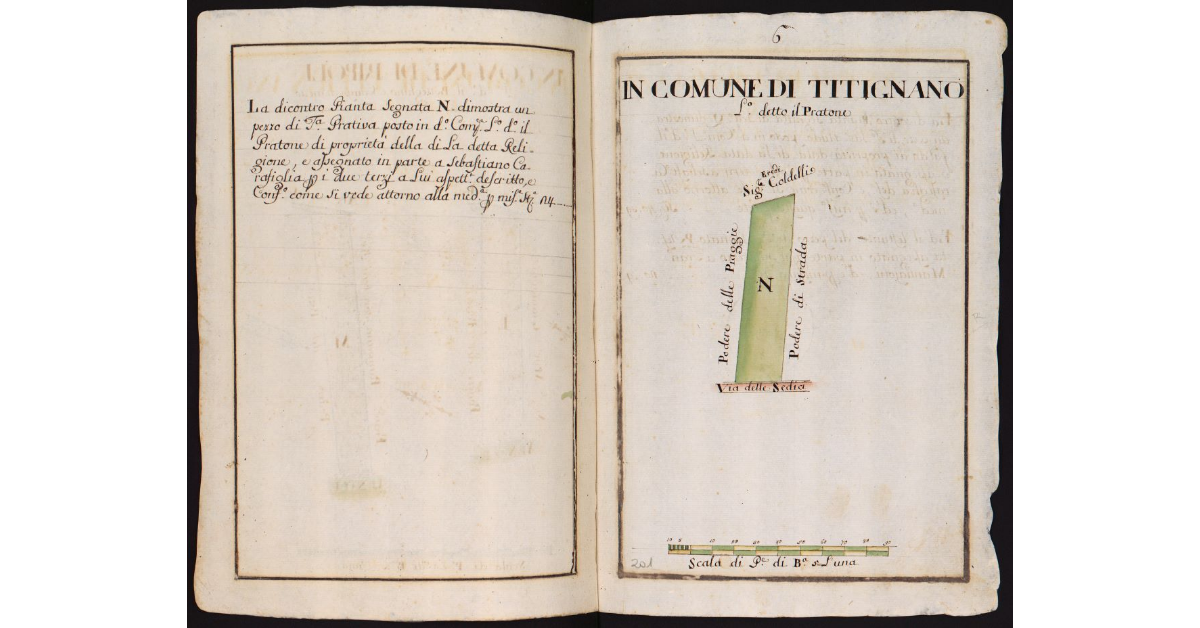 La dicontro Pianta Segnata N. dimostra un
pezzo di Tª Prativa posto in d.º Com.º L.º d.º il
Pratone di proprietà della di La detta Reli-
gione, e assegnato in parte a Sebastiano Ca-
rafiglia p i due terzi a Lui aspett.ⁱ descritto, e
Conf.º come si vede attorno alla med.ª p mis.ª
6
IN COMUNE DI TITIGNANO
L.º detto il Pratone
Eredi
Sig.ʳᵉ Coldelli
Podere delle Piaggie
N
Podere di Strada
Via delle Sedici
10 5 10 20 30 40 50 60 70 80 90
Scala di P.ᵉ di B.ª a Luna
201